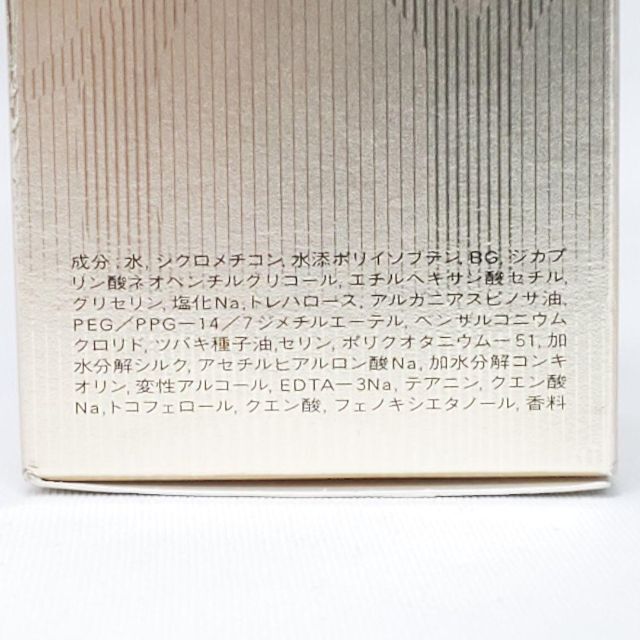 成分：水, シクロメチコン, 水添ポリイソブテン, BG, ジカプ
リン酸ネオペンチルグリコール, エチルヘキサン酸セチル,
グリセリン, 塩化Na, トレハロース, アルガニアスピノサ油,
PEG／PPG－14／7ジメチルエーテル, ベンザルコニウム
クロリド, ツバキ種子油, セリン, ポリクオタニウム－51, 加
水分解シルク, アセチルヒアルロン酸Na, 加水分解コンキ
オリン, 変性アルコール, EDTA－3Na, テアニン, クエン酸
Na, トコフェロール, クエン酸, フェノキシエタノール, 香料